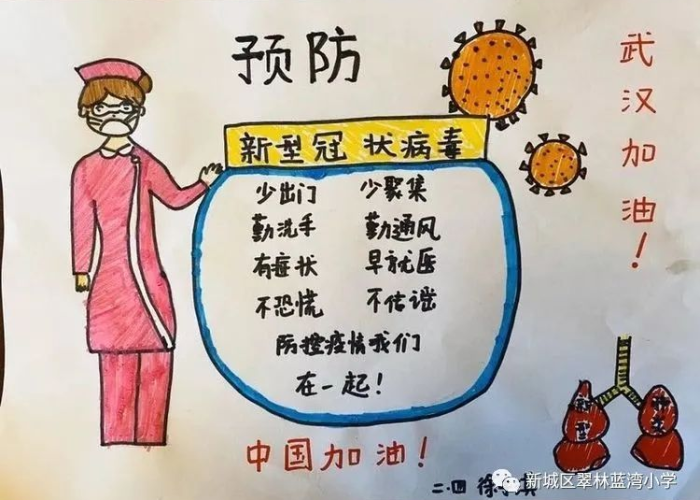 预防
新型冠 状病毒
少出门 少聚集
勤洗手 勤通风
有症状 早就医
不恐慌 不信谣
防控疫情我们
在一起！
武汉加油！
中国加油！
新型
二.四 徐
新城区翠林蓝湾小学